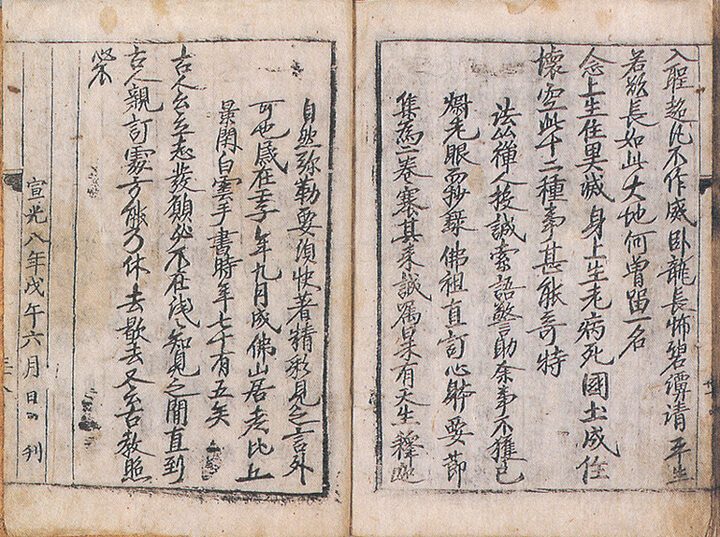 入聖超凡不作威卧龍長怖碧潭清平生
若欲長如此大地何曽留一名
念上生住異滅 身上生老病死 國土成住
壞空此十二種事甚能竒特
法公禅人投誠索語警助余事不獲已
老眼而抄録佛祖直訂心躰要節
集為一卷塞其来誠属果有天生釋迦
自然弥勒要須快著精彩見之言外
可也歳在壬子年九月成佛山居老比丘
景閑白雲手書時年七十有五矣
古人云立志發願必不在浅〻知見之間直到
古人親訂處方能乃休去歇去又云古教照
宣光八年戊午六月日 刊